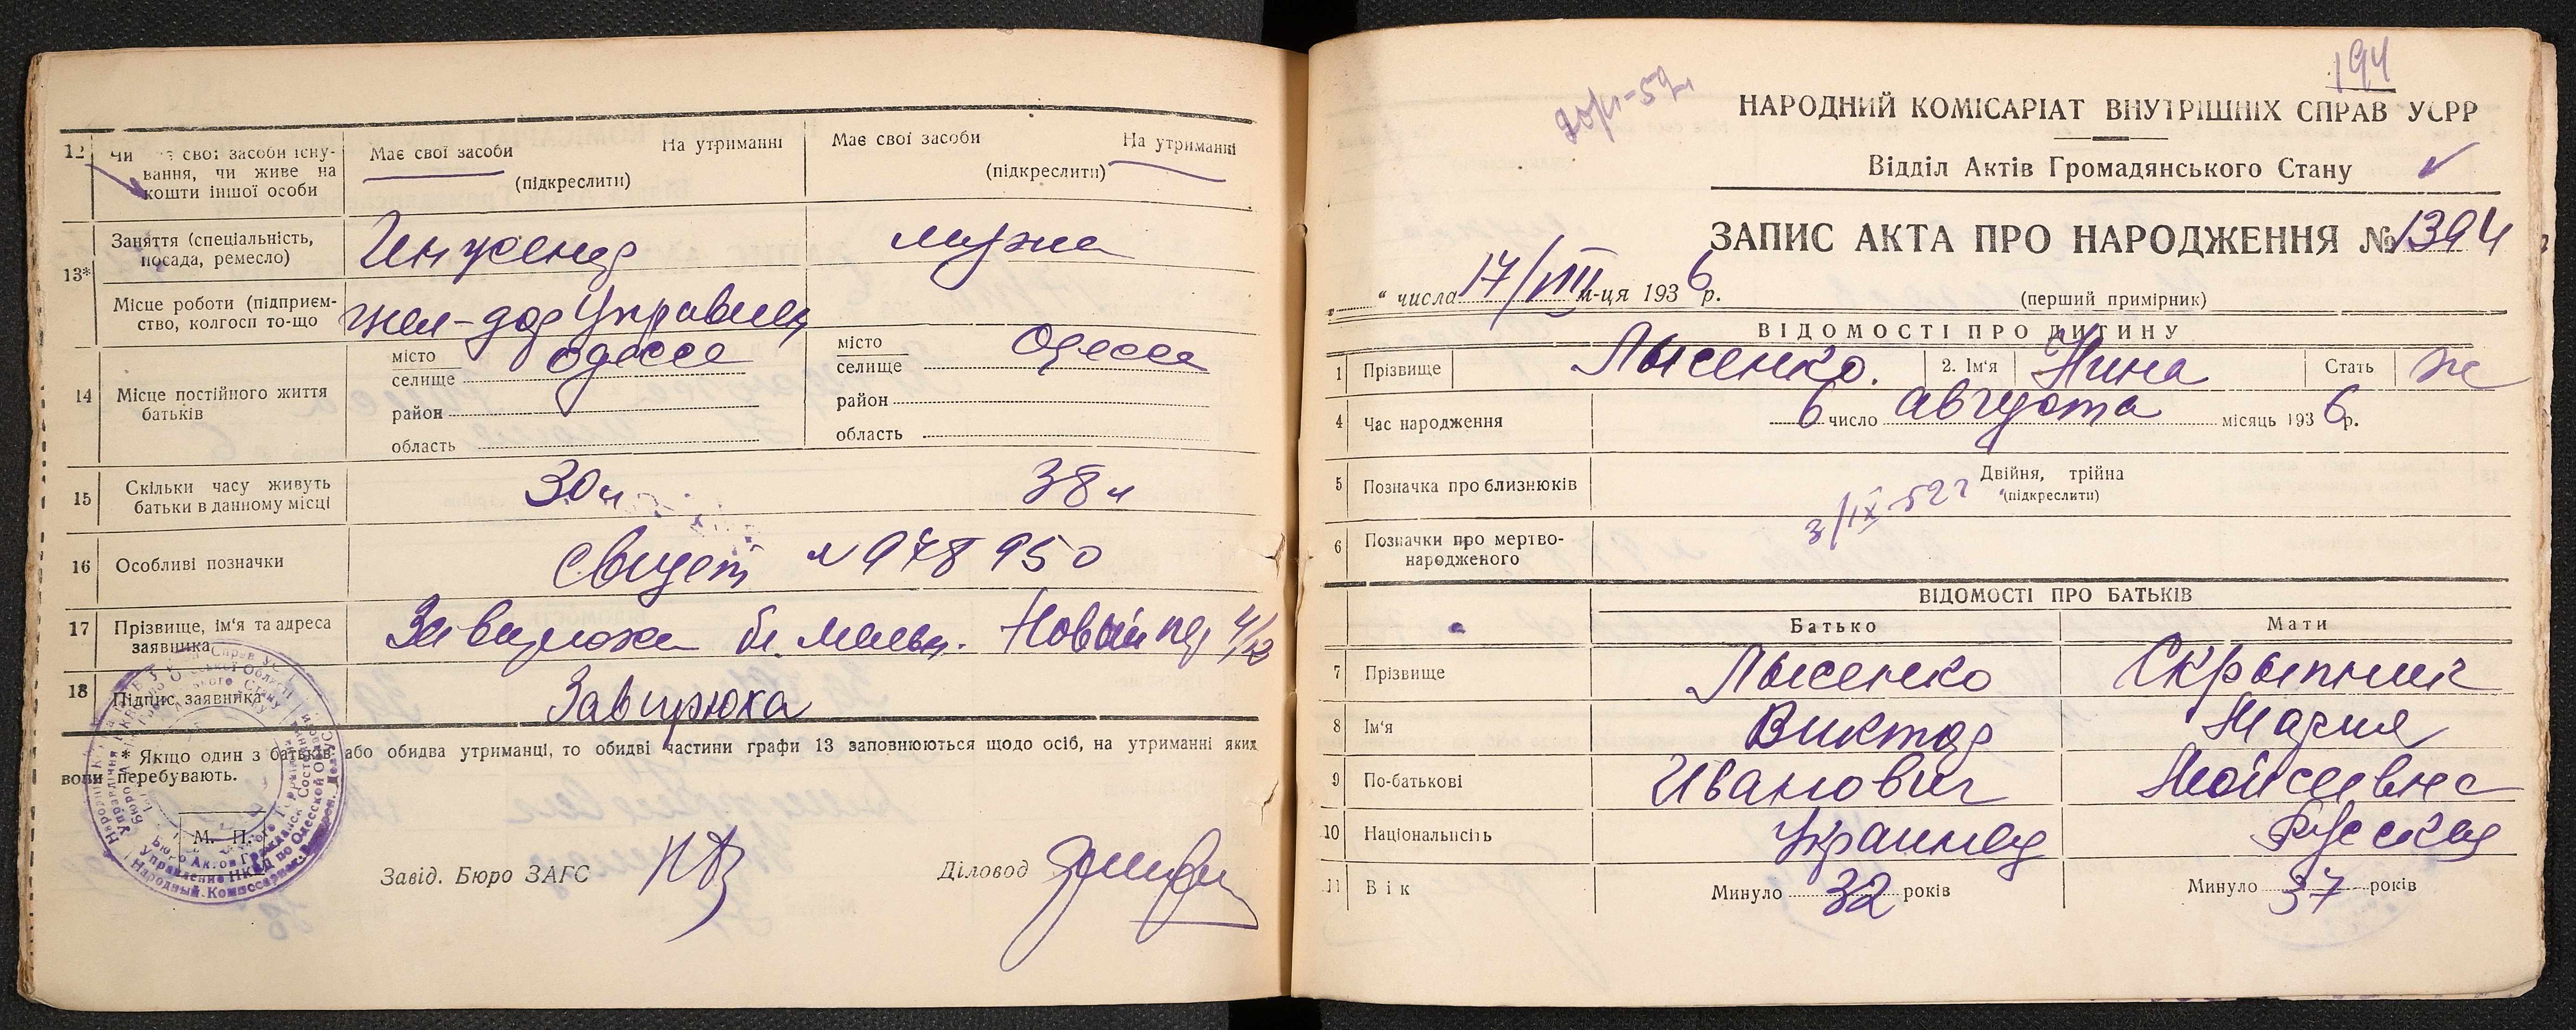 12 Чи має свої засоби існу-
вання, чи живе на
кошти іншої особи
Має свої засоби На утриманні
(підкреслити)
Має свої засоби На утриманні
(підкреслити)
13* Заняття (спеціальність,
посада, ремесло)
Инженер
мужа
Місце роботи (підприєм-
ство, колгосп то-що
жел-дор Управлен
14 Місце постійного життя
батьків
місто Одесса
селище
район
область
місто Одесса
селище
район
область
15 Скільки часу живуть
батьки в данному місці
30 л
38 л
16 Особливі позначки
Свидет № 978950
17 Прізвище, ім'я та адреса
заявника
Новый 4/12
18 Підпис заявника
Завирюха
* Якщо один з батьків або обидва утриманці, то обидві частини графи 13 заповнюються щодо осіб, на утриманні яких
вони перебувають.
М. П.
Завід. Бюро ЗАГС
Діловод
194
НАРОДНИЙ КОМІСАРІАТ ВНУТРІШНІХ СПРАВ УСРР
Відділ Актів Громадянського Стану
ЗАПИС АКТА ПРО НАРОДЖЕННЯ № 1394
„ “ числа 17/VIII м-ця 1936 р.
(перший примірник)
ВІДОМОСТІ ПРО ДИТИНУ
1 Прізвище Лысенко. 2. Ім'я Нина Стать ж
4 Час народження 6 число августа місяць 1936 р.
5 Позначка про близнюків Двійня, трійня
(підкреслити)
3/IX-52 г
6 Позначки про мертво-
народженого
ВІДОМОСТІ ПРО БАТЬКІВ
Батько Мати
7 Прізвище Лысенко Скрыпник
8 Ім'я Виктор Мария
9 По-батькові Иванович Мойсеевна
10 Національність Украинец Русская
11 Вік Минуло 32 років Минуло 37 років